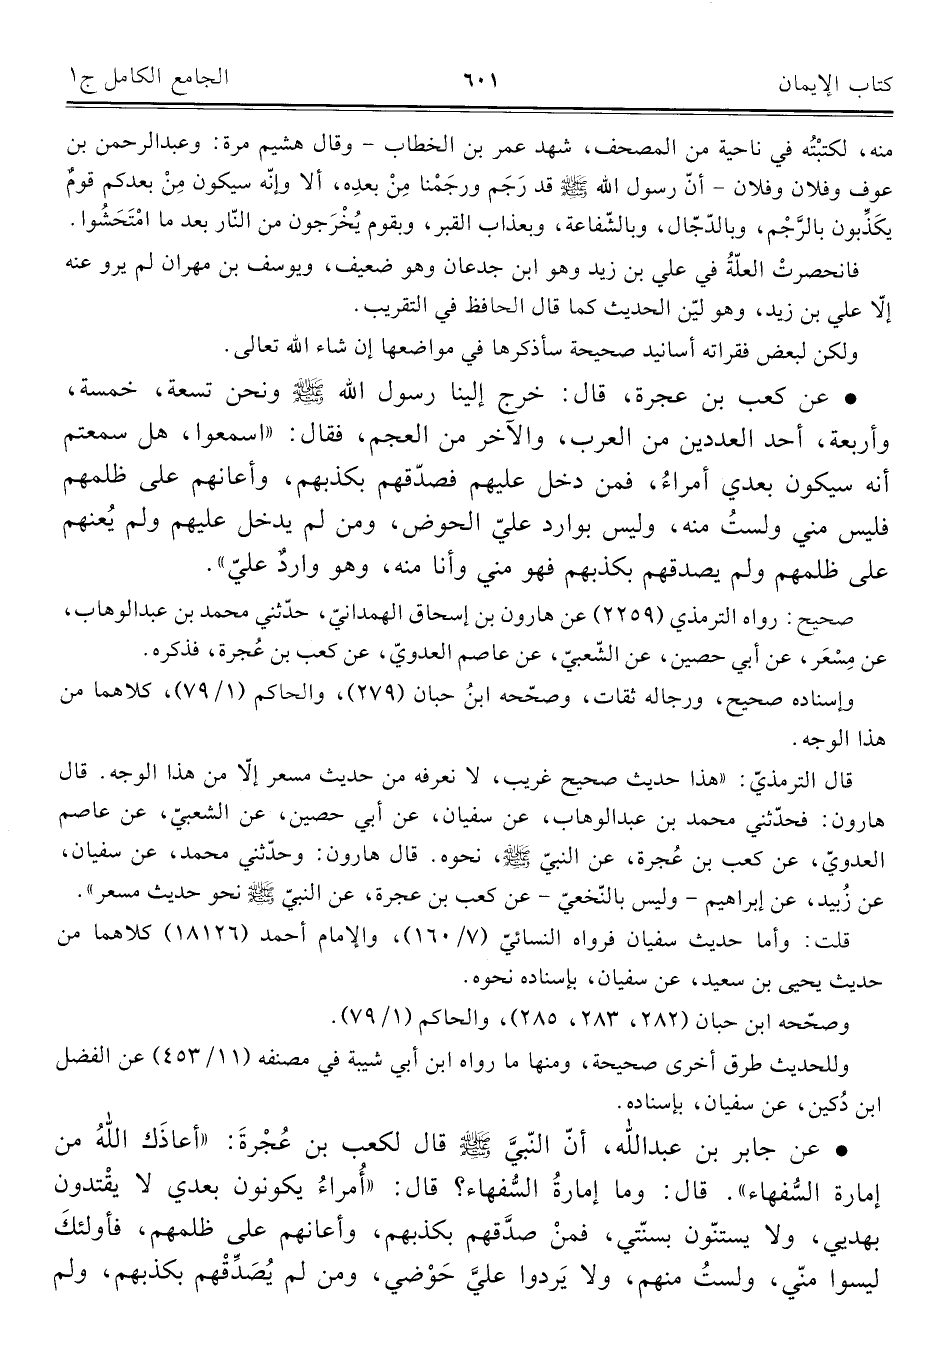 كتاب الإيمان ٦٠١ الجامع الكامل ج١
منه، لكتبْتُه في ناحية من المصحف، شهد عمر بن الخطاب - وقال هشيم مرة: وعبدالرحمن بن
عوف وفلان وفلان - أنّ رسول الله ﷺ قد رَجَم ورجَمْنا مِنْ بعدِه، ألا وإنّه سيكون مِنْ بعدكم قومٌ
يكَذِّبون بالرَّجْم، وبالدّجّال، وبالشّفاعة، وبعذاب القبر، وبقوم يُخْرَجون من النّار بعد ما امْتَحَشُوا.
فانحصرتْ العلّةُ في علي بن زيد وهو ابن جدعان وهو ضعيف، ويوسف بن مهران لم يرو عنه
إلّا علي بن زيد، وهو ليّن الحديث كما قال الحافظ في التقريب.
ولكن لبعض فقراته أسانيد صحيحة سأذكرها في مواضعها إن شاء الله تعالى.
● عن كعب بن عجرة، قال: خرج إلينا رسول الله ﷺ ونحن تسعة، خمسة،
وأربعة، أحد العددين من العرب، والآخر من العجم، فقال: «اسمعوا، هل سمعتم
أنه سيكون بعدي أمراءُ، فمن دخل عليهم فصدّقهم بكذبهم، وأعانهم على ظلمهم
فليس مني ولستُ منه، وليس بوارد عليّ الحوض، ومن لم يدخل عليهم ولم يُعنهم
على ظلمهم ولم يصدقهم بكذبهم فهو مني وأنا منه، وهو واردٌ عليّ».
صحيح: رواه الترمذي (٢٢٥٩) عن هارون بن إسحاق الهمدانيّ، حدّثني محمد بن عبدالوهاب،
عن مِسْعَر، عن أبي حصين، عن الشّعبيّ، عن عاصم العدويّ، عن كعب بن عُجرة، فذكره.
وإسناده صحيح، ورجاله ثقات، وصحّحه ابنُ حبان (٢٧٩)، والحاكم (١/ ٧٩)، كلاهما من
هذا الوجه.
قال الترمذيّ: «هذا حديث صحيح غريب، لا نعرفه من حديث مسعر إلّا من هذا الوجه. قال
هارون: فحدّثني محمد بن عبدالوهاب، عن سفيان، عن أبي حصين، عن الشعبيّ، عن عاصم
العدويّ، عن كعب بن عُجرة، عن النبيّ ﷺ، نحوه. قال هارون: وحدّثني محمد، عن سفيان،
عن زُبيد، عن إبراهيم - وليس بالنّخعيّ - عن كعب بن عجرة، عن النبيّ ﷺ نحو حديث مسعر».
قلت: وأما حديث سفيان فرواه النسائيّ (٧/ ١٦٠)، والإمام أحمد (١٨١٢٦) كلاهما من
حديث يحيى بن سعيد، عن سفيان، بإسناده نحوه.
وصحّحه ابن حبان (٢٨٢، ٢٨٣، ٢٨٥)، والحاكم (١/ ٧٩).
وللحديث طرق أخرى صحيحة، ومنها ما رواه ابن أبي شيبة في مصنفه (١١/ ٤٥٣) عن الفضل
ابن دُكين، عن سفيان، بإسناده.
● عن جابر بن عبدالله، أنّ النّبيَّ ﷺ قال لكعب بن عُجْرةَ: «أعاذَك اللهُ من
إمارة السُّفهاء». قال: وما إمارةُ السُّفهاء؟ قال: «أُمراءُ يكونون بعدي لا يقْتدون
بهديي، ولا يستنّون بسنّتي، فمنْ صدَّقهم بكذبهم، وأعانهم على ظلمهم، فأولئكَ
ليسوا منّي، ولستُ منهم، ولا يَردوا عليَّ حَوْضي، ومن لم يُصَدِّقْهم بكذبهم، ولم